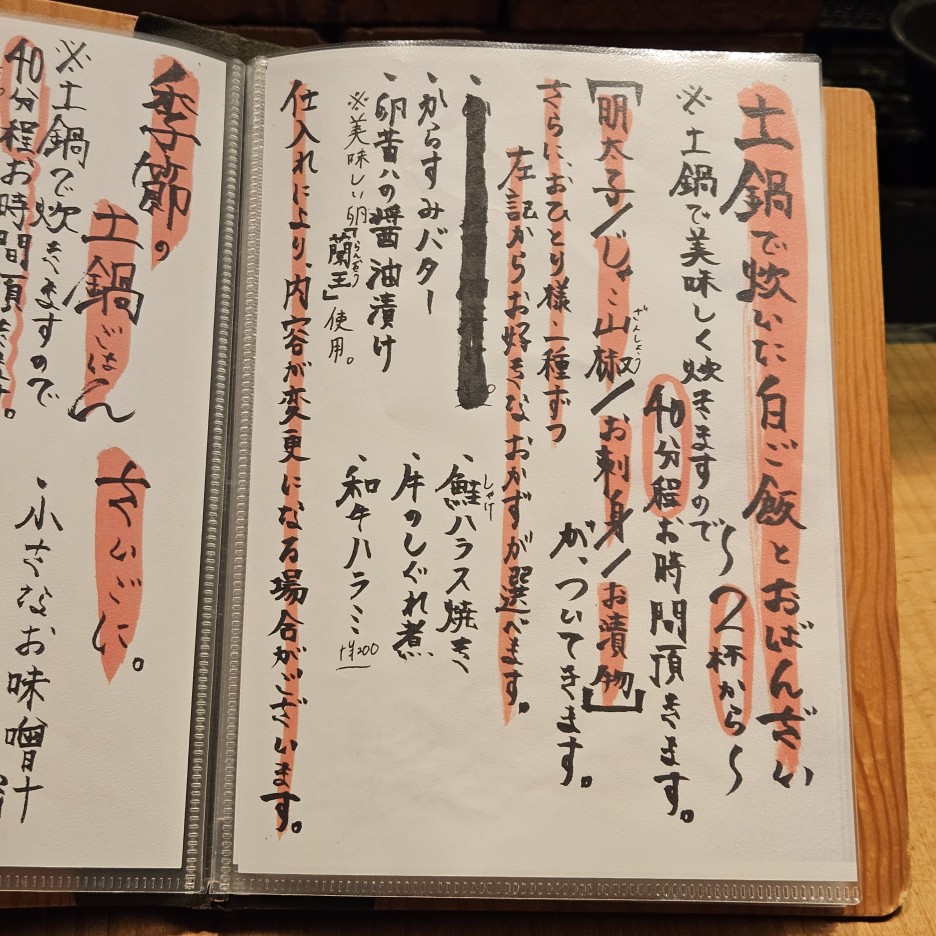 土鍋で炊いた白ご飯とおばんざい
〜2杯から〜
※土鍋で美味しく炊きますので
40分程お時間頂きます。
[明太子/じゃこ山椒/お刺身/お漬物]
ざんしょう
が、ついてきます。
さらに、おひとり様一種ずつ
左記からお好きなおかずが選べます。
・からすみバター
・卵黄の醤油漬け
※美味しい卵「蘭王」使用。
らんおう
・鮭ハラス焼き
しゃけ
・牛のしぐれ煮
・和牛ハラミ +¥200
仕入れにより、内容が変更になる場合がございます。
季節の
土鍋ごはん
※土鍋で炊きますので
40分程お時間頂きます。
さいごに。
・小さなお味噌汁